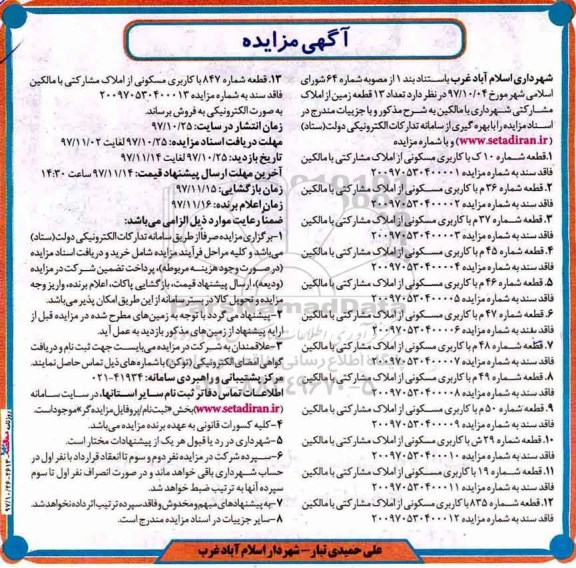 آگهی مزایده
شهرداری اسلام آباد غرب باستناد بند ۱ از مصوبه شماره ۶۴ شورای
اسلامی شهر مورخ ۹۷/۱۰/۰۴ در نظر دارد تعداد ۱۳ قطعه زمین از املاک
مشارکتی شهرداری با مالکین به شرح مذکور و با جزییات مندرج در
اسناد مزایده را با بهره گیری از سامانه تدارکات الکترونیکی دولت (ستاد)
(www.setadiran.ir) و با شماره مزایده
۱. قطعه شماره ۱۰ ک با کاربری مسکونی از املاک مشارکتی با مالکین
فاقد سند به شماره مزایده ۲۰۰۹۷۰۵۳۰۴۰۰۰۰۱
۲. قطعه شماره ۳۶ م با کاربری مسکونی از املاک مشارکتی با مالکین
فاقد سند به شماره مزایده ۲۰۰۹۷۰۵۳۰۴۰۰۰۰۲
۳. قطعه شماره ۳۷ م با کاربری مسکونی از املاک مشارکتی با مالکین
فاقد سند به شماره مزایده ۲۰۰۹۷۰۵۳۰۴۰۰۰۰۳
۴. قطعه شماره ۴۵ م با کاربری مسکونی از املاک مشارکتی با مالکین
فاقد سند به شماره مزایده ۲۰۰۹۷۰۵۳۰۴۰۰۰۰۴
۵. قطعه شماره ۴۶ م با کاربری مسکونی از املاک مشارکتی با مالکین
فاقد سند به شماره مزایده ۲۰۰۹۷۰۵۳۰۴۰۰۰۰۵
۶. قطعه شماره ۴۷ م با کاربری مسکونی از املاک مشارکتی با مالکین
فاقد سند به شماره مزایده ۲۰۰۹۷۰۵۳۰۴۰۰۰۰۶
۷. قطعه شماره ۴۸ م با کاربری مسکونی از املاک مشارکتی با مالکین
فاقد سند به شماره مزایده ۲۰۰۹۷۰۵۳۰۴۰۰۰۰۷
۸. قطعه شماره ۴۹ م با کاربری مسکونی از املاک مشارکتی با مالکین
فاقد سند به شماره مزایده ۲۰۰۹۷۰۵۳۰۴۰۰۰۰۸
۹. قطعه شماره ۵۰ م با کاربری مسکونی از املاک مشارکتی با مالکین
فاقد سند به شماره مزایده ۲۰۰۹۷۰۵۳۰۴۰۰۰۰۹
۱۰. قطعه شماره ۲۹ ش با کاربری مسکونی از املاک مشارکتی با مالکین
فاقد سند به شماره مزایده ۲۰۰۹۷۰۵۳۰۴۰۰۰۱۰
۱۱. قطعه شماره ۱۹ با کاربری مسکونی از املاک مشارکتی با مالکین
فاقد سند به شماره مزایده ۲۰۰۹۷۰۵۳۰۴۰۰۰۱۱
۱۲. قطعه شماره ۸۳۵ با کاربری مسکونی از املاک مشارکتی با مالکین
فاقد سند به شماره مزایده ۲۰۰۹۷۰۵۳۰۴۰۰۰۱۲
۱۳. قطعه شماره ۸۴۷ با کاربری مسکونی از املاک مشارکتی با مالکین
فاقد سند به شماره مزایده ۲۰۰۹۷۰۵۳۰۴۰۰۰۱۳
به صورت الکترونیکی به فروش برساند.
زمان انتشار در سایت: ۹۷/۱۰/۲۵
مهلت دریافت اسناد مزایده: ۹۷/۱۰/۲۵ لغایت ۹۷/۱۱/۰۲
تاریخ بازدید: ۹۷/۱۰/۲۵ لغایت ۹۷/۱۱/۱۴
آخرین مهلت ارسال پیشنهاد قیمت: ۹۷/۱۱/۱۴ ساعت ۱۴:۳۰
زمان بازگشایی: ۹۷/۱۱/۱۵
زمان اعلام برنده: ۹۷/۱۱/۱۶
ضمنا رعایت موارد ذیل الزامی می‌باشد:
۱-برگزاری مزایده صرفا از طریق سامانه تدارکات الکترونیکی دولت (ستاد)
می‌باشد و کلیه مراحل فرآیند مزایده شامل خرید و دریافت اسناد مزایده
(در صورت وجود هزینه مربوطه)، پرداخت تضمین شرکت در مزایده
(ودیعه)، ارسال پیشنهاد قیمت، بازگشایی پاکات، اعلام برنده، واریز وجه
مزایده و تحویل کالا در بستر سامانه از این طریق امکان پذیر می‌باشد.
۲-پیشنهاد می‌گردد با توجه به زمین‌های مطرح شده در مزایده قبل از
ارایه پیشنهاد از زمین‌های مذکور بازدید به عمل آید.
۳-علاقمندان به شرکت در مزایده می‌بایست جهت ثبت نام و دریافت
گواهی امضای الکترونیکی (توکن) با شماره‌های ذیل تماس حاصل نمایند.
مرکز پشتیبانی و راهبردی سامانه: ۴۱۹۳۴-۰۲۱
اطلاعات تماس دفاتر ثبت نام سایر استانها، در سایت سامانه
(www.setadiran.ir) بخش «ثبت نام/پروفایل مزایده گر» موجود است.
۴-کلیه کسورات قانونی به عهده برنده مزایده می‌باشد.
۵-شهرداری در رد یا قبول هر یک از پیشنهادات مختار است.
۶-سپرده شرکت در مزایده نفر دوم و سوم تا انعقاد قرارداد با نفر اول در
حساب شهرداری باقی خواهد ماند و در صورت انصراف نفر اول تا سوم
سپرده آنها به ترتیب ضبط خواهد شد.
۷-به پیشنهادهای مبهم و مخدوش و فاقد سپرده ترتیب اثر داده نخواهد شد.
۸-سایر جزییات در اسناد مزایده مندرج است.
علی حمیدی تبار – شهردار اسلام آباد غرب